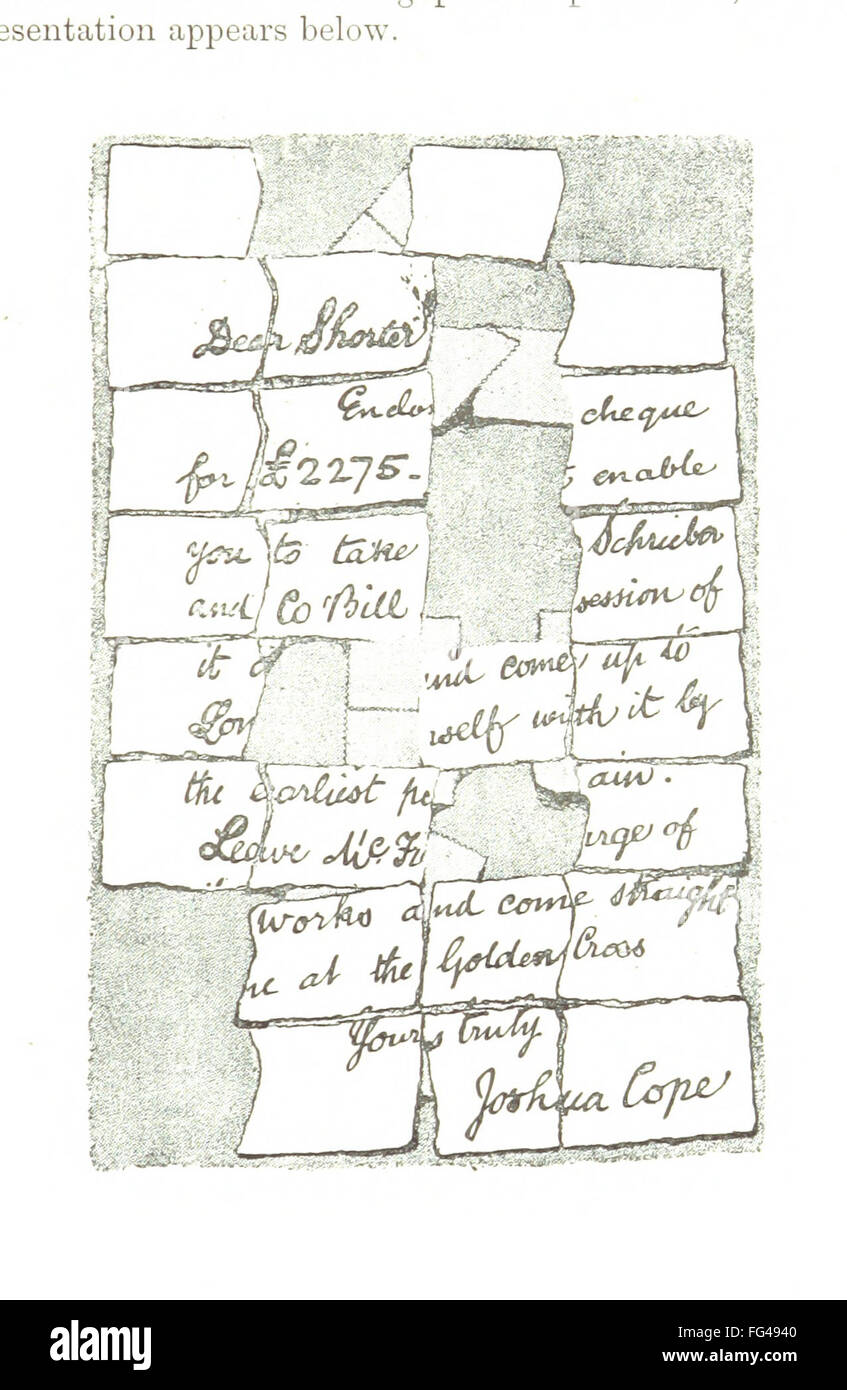 esentation appears below.
Dear Shorter
Enclo cheque
for £2275. enable
you to take Schriebor
and Co Bill session of
it and come up to
Lon self with it by
the earliest pe ain.
Leave Mc. Fu rge of
works and come straight
at the Golden Cross
Yours truly
Joshua Cope
alamy
Image ID: FG4940
www.alamy.com